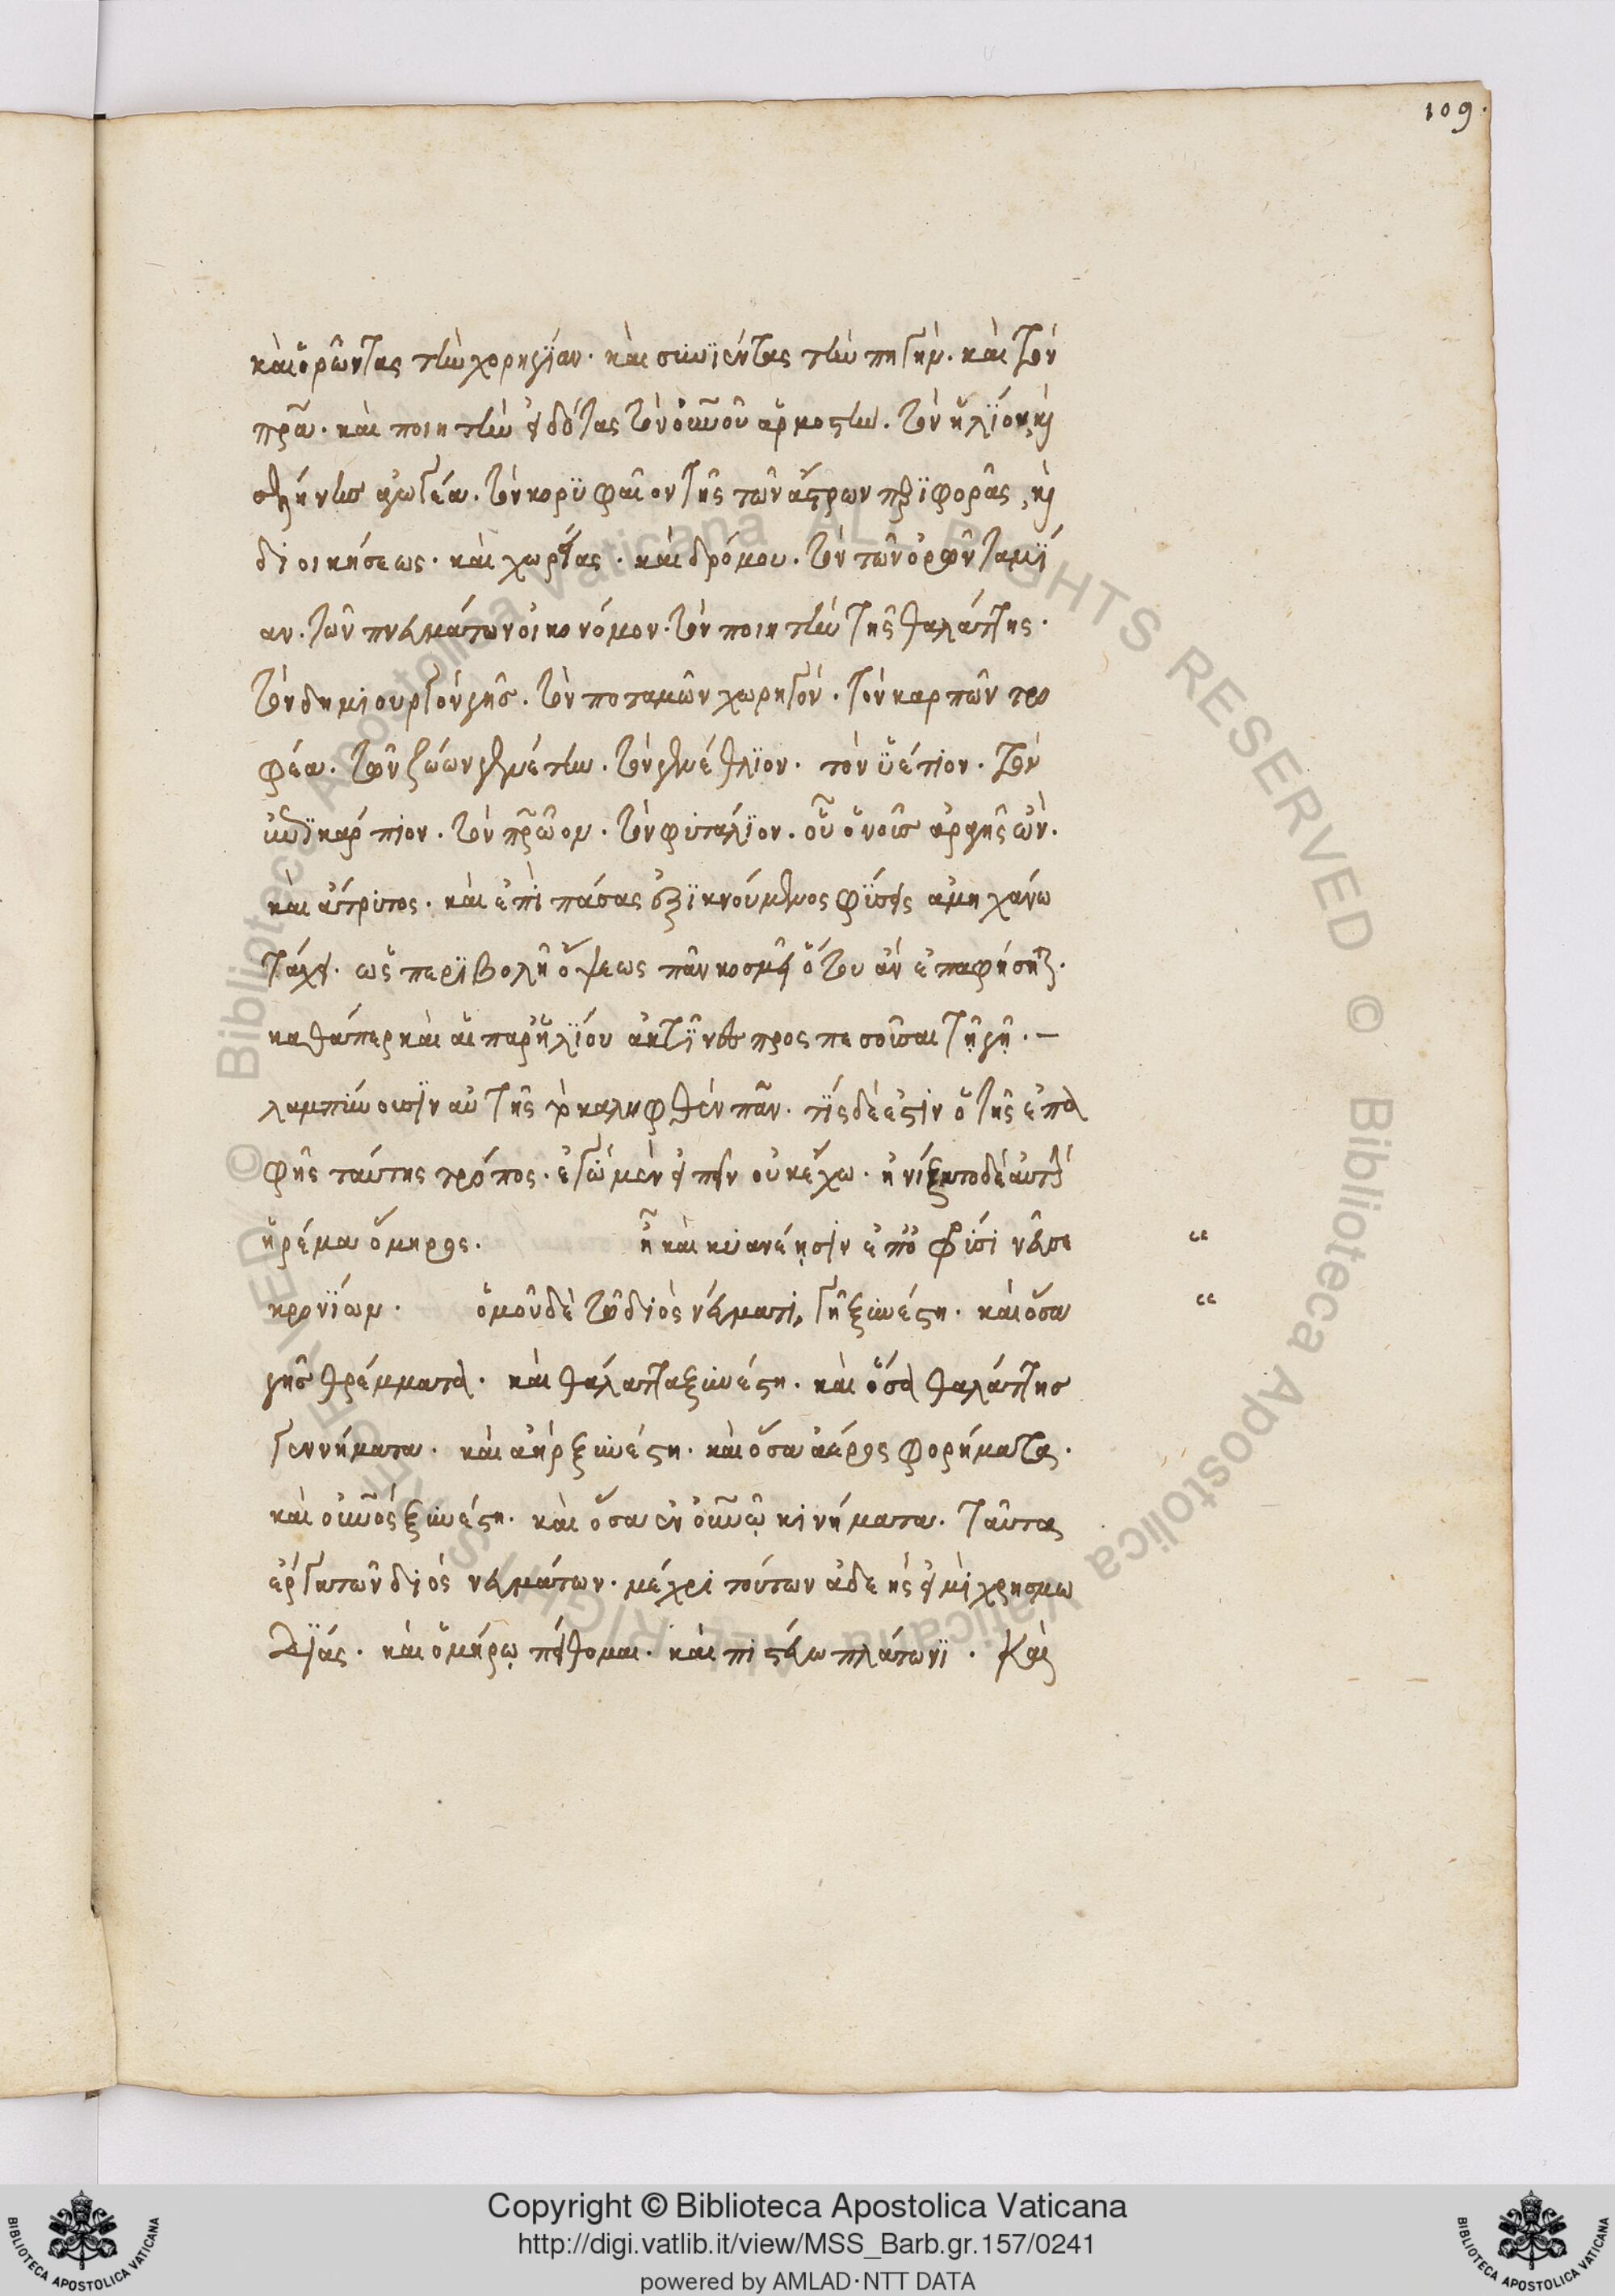 109.
καὶ ὁρῶντας τὴν χορηγΐαν· καὶ συνϊέντας τὴν πηγήν· καὶ τὸν
πρα· καὶ ποιητὴν εἰδότας τὸν οὐνοῦ ἁρμοστὴν· τὸν ἡλΐου καὶ
σελήνης ἀγωγέα· τὸν κορυφαῖον τῆς τῶν ἄστρων περϊφορᾶς, καὶ
διοικήσεως· καὶ χωρείας· καὶ δρόμου· τὸν τῶν ὁρῶν ταμΐ
αν· τῶν πνευμάτων οἰκονόμον· τὸν ποιητὴν τῆς θαλάττης·
τὸν δημιουργὸν γῆς· τὸν ποταμῶν χωρηγόν· τὸν καρπῶν τρο
φέα· τῶν ζώων γενέτην· τὸν γενέθλϊον· τὸν ὑέτιον· τὸν
ἐπϊκάρπιον· τὸν πρῶον· τὸν φυτάλϊον· οὗ ὁ νοῦς ἀργὴς ὢν·
καὶ ἄτρυτος· καὶ ἐπὶ πάσας ἐξϊκνούμενος φύσεις ἀμηχάνω
τάχει· ὡς περϊβολῆ ὄψεως πᾶν κοσμεῖ ὅτου ἂν ἐπαφήσηται·
καθάπερ καὶ αἱ παρ' ἡλΐου ἀκτῖνες προσπεσοῦσαι τῇ γῇ· —
λαμπρύνουσϊν αὐτῆς τὸ καλυφθὲν πᾶν· τΐς δέ ἐστιν ὁ τῆς ἐπα
φῆς ταύτης τρόπος· ἐγὼ μὲν εἰπεῖν οὐκ ἔχω· ἠνίξατο δὲ αὐτὸ
ἠρέμα ὅμηρος· ἦ καὶ κυανέῃσιν ἐπ' ὀφρύσι νεῦσε “
κρονΐων· ὁμοῦ δὲ τῷ διὸς νεύματι, γῆ ξυνέστη· καὶ ὅσα “
γῆς θρέμματα· καὶ θάλαττα ξυνέστη· καὶ ὅσα θαλάττης
γεννήματα· καὶ ἀὴρ ξυνέστη· καὶ ὅσα ἀέρος φορήματα·
καὶ οὐνὸς ξυνέστη· καὶ ὅσα ἐν οὐνῷ κινήματα· ταῦτα
ἔργα τῶν διὸς νευμάτων· μέχρι τούτων ἀδεής εἰμὶ χρησμω
δΐας· καὶ ὁμήρῳ πείθομαι· καὶ πιστεύω πλάτωνϊ· καὶ
Copyright © Biblioteca Apostolica Vaticana
http://digi.vatlib.it/view/MSS_Barb.gr.157/0241
powered by AMLAD·NTT DATA
BIBLIOTECA APOSTOLICA VATICANA
BIBLIOTECA APOSTOLICA VATICANA
© Biblioteca Apostolica Vaticana ALL RIGHTS RESERVED © Biblioteca Apostolica Vaticana ALL RIGHTS RESERVED